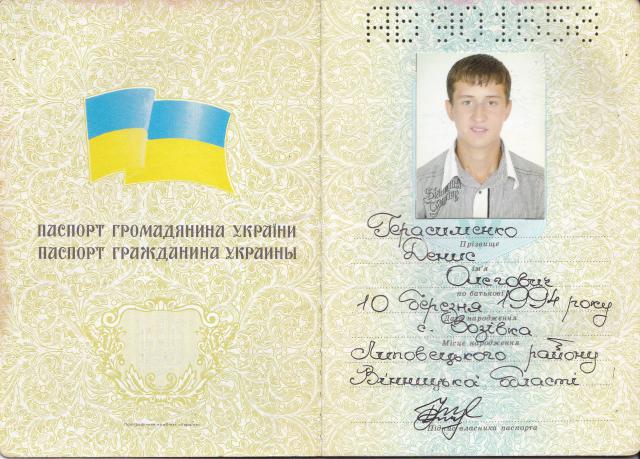 ПАСПОРТ ГРОМАДЯНИНА УКРАЇНИ
ПАСПОРТ ГРАЖДАНИНА УКРАИНЫ
Герасименко
Прізвище
Денис
ім'я
Олегович
по батькові
10 березня 1994 року
Дата народження
с. Зозівка
Місце народження
Липовецького району
Вінницької області
Підпис власника паспорта